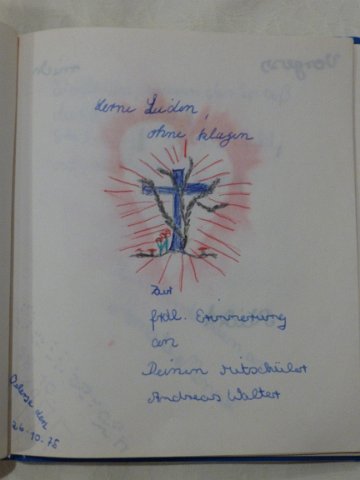 Lerne Leiden,
ohne klagen
Zur
frdl. Erinnerung
an
Deinen Mitschüler
Andreas Walter
den
26.10.75
Vergess
mich